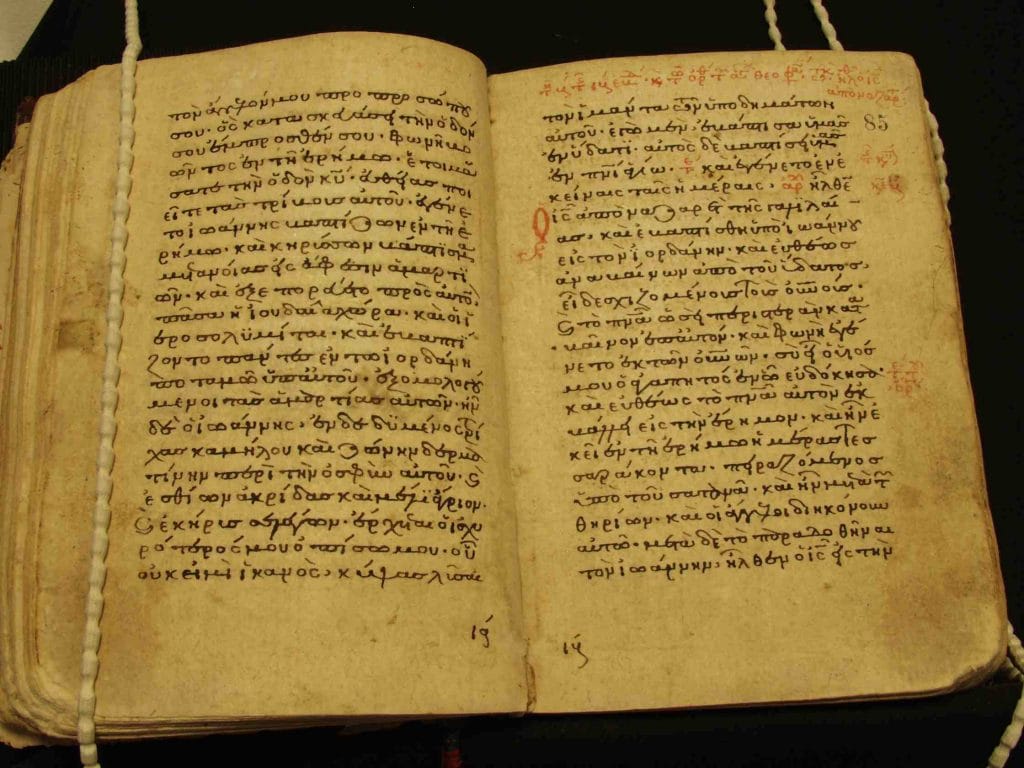 τὸν ἄγγελόν μου πρὸ προσώπου
σου· ὃς κατασκευάσει τὴν ὁδόν
σου ἔμπροσθέν σου· φωνὴ βο
ῶντος ἐν τῆ ἐρήμω· ἑτοιμά
σατε τὴν ὁδὸν κυ· εὐθείας ποι
εῖτε τὰς τρίβους αὐτοῦ· ἐγένε
το ἰωάννης βαπτίζων ἐν τῆ ἐ
ρήμω· καὶ κηρύσσων βάπτισμα
μετανοίας εἰς ἄφεσιν ἁμαρτι
ῶν· καὶ ἐξεπορεύετο πρὸς αὐτὸν
πᾶσα ἡ ἰουδαία χώρα· καὶ οἱ ἱ
εροσολυμῖται· καὶ ἐβαπτί
ζοντο πάντες ἐν τῶ ἰορδάνη
ποταμῶ ὑπ αὐτοῦ· ἐξομολογού
μενοι τὰς ἁμαρτίας αὐτῶν· ἦν
δὲ ὁ ἰωάννης· ἐνδεδυμένος τρί
χας καμήλου καὶ ζώνην δερμα
τίνην περὶ τὴν ὀσφὺν αὐτοῦ· ϗ
ἐσθίων ἀκρίδας καὶ μέλι ἄγριον·
ϗ ἐκήρυσσε λέγων· ἔρχεται ὁ ἰσχυ
ρότερός μου ὀπίσω μου· οὗ
οὐκ εἰμὶ ἱκανὸς· κύψας λῦσαι
τὸν ἱμάντα τῶν ὑποδημάτων
αὐτοῦ· ἐγὼ μὲν ἐβάπτισα ὑμᾶς
85
ἐν ὕδατι· αὐτὸς δὲ βαπτίσει ὑμᾶς
ἐν πνι ἁγίω· καὶ ἐγένετο ἐν ἐ
κείναις ταῖς ἡμέραις· ἦλθεν
ὁ ις ἀπὸ ναζαρὲτ τῆς γαλιλαί
ας· καὶ ἐβαπτίσθη ὑπὸ ἰωάννου
εἰς τὸν ἰορδάνην· καὶ εὐθέως
ἀναβαίνων ἀπὸ τοῦ ὕδατος·
εἶδε σχιζομένους τοὺς οὐνους·
ϗ τὸ πνα ὡσεὶ περιστερὰν κατα
βαῖνον ἐπ αὐτόν· καὶ φωνὴ ἐγέ
νετο ἐκ τῶν οὐνων· σὺ εἶ ὁ υἱός
μου ὁ ἀγαπητὸς ἐν ὧ εὐδόκησα·
καὶ εὐθέως τὸ πνα αὐτὸν ἐκ
βάλλει εἰς τὴν ἔρημον· καὶ ἦν ἐ
κεῖ ἐν τῆ ἐρήμω ἡμέρας τεσ
σαράκοντα· πειραζόμενος
ὑπὸ τοῦ σατανᾶ· καὶ ἦν μετὰ τῶν
θηρίων· καὶ οἱ ἄγγελοι διηκόνουν
αὐτῶ· μετὰ δὲ τὸ παραδοθῆναι
τὸν ἰωάννην· ἦλθεν ὁ ις εἰς τὴν